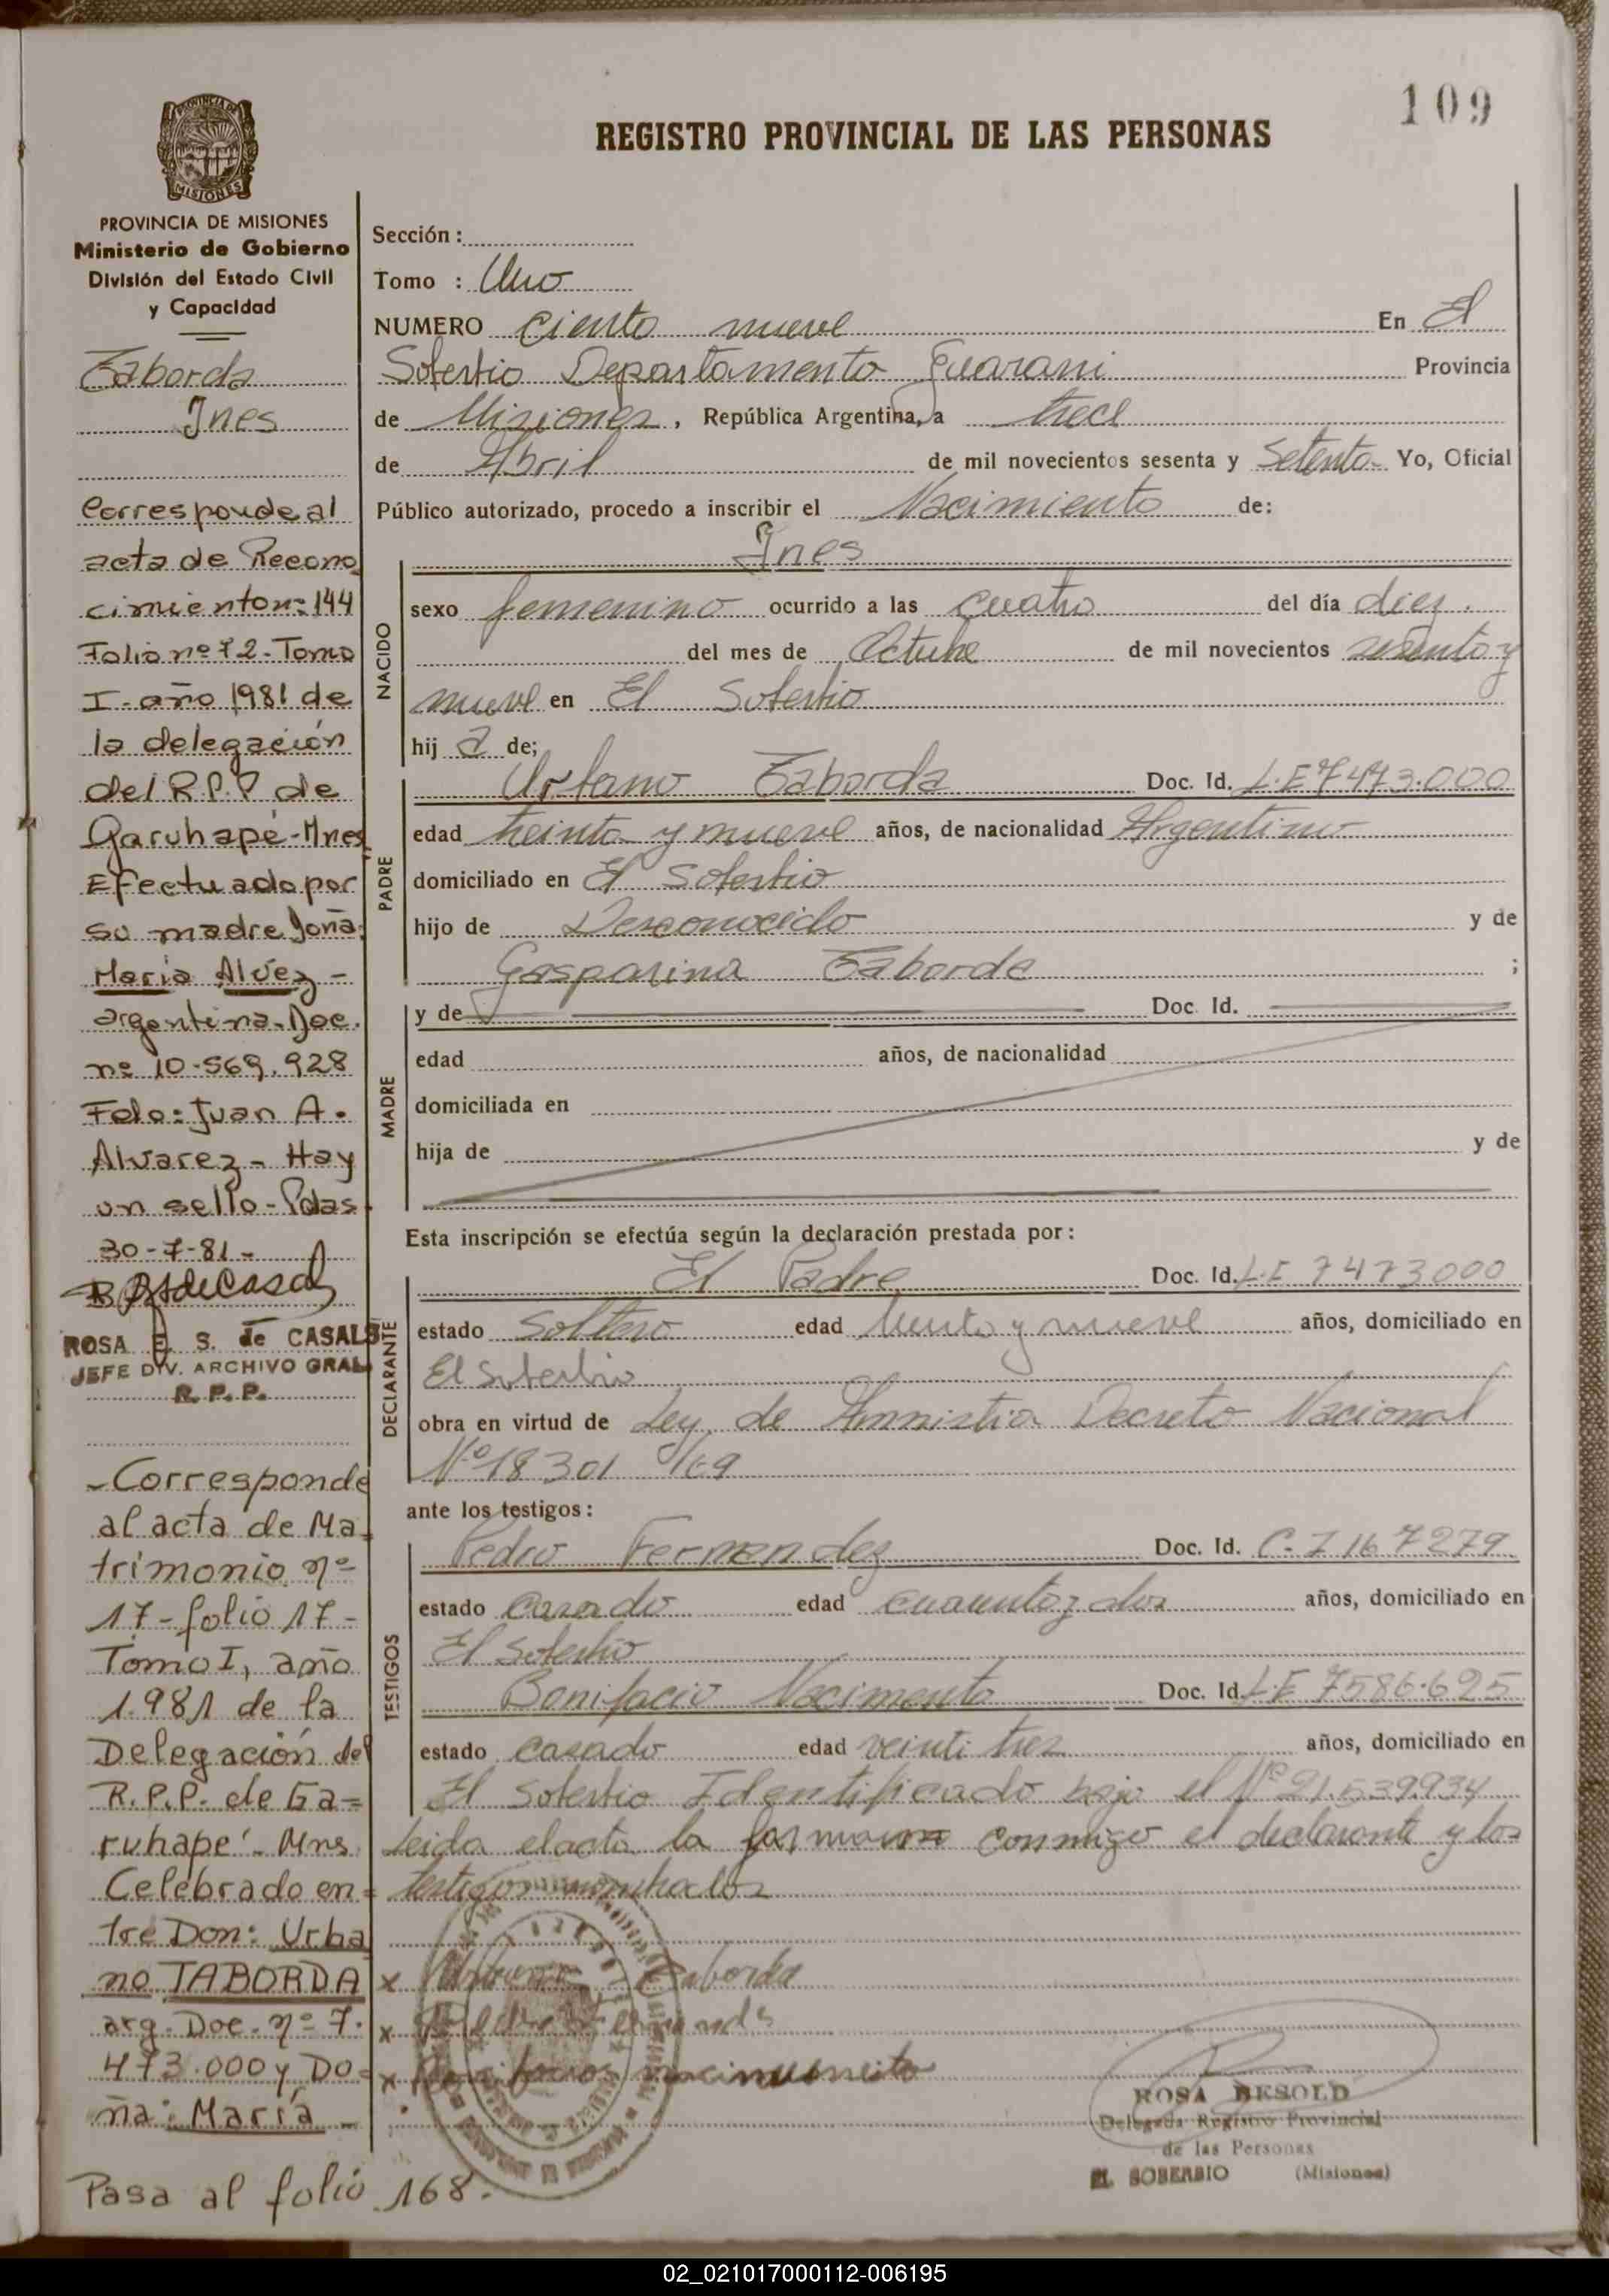 109
REGISTRO PROVINCIAL DE LAS PERSONAS
MISIONES
PROVINCIA DE MISIONES
Ministerio de Gobierno
División del Estado Civil
y Capacidad
Taborda
Ines
Corresponde al
acta de Recono
cimiento nº 144
Folio nº 72 - Tomo
I - año 1981 de
la delegación
del R.P.P de
Garuhapé - Mnes
Efectuado por
su madre Doña:
Maria Alvez -
argentina - Doc.
nº 10.569.928
Fdo: Juan A.
Alvarez - Hay
un sello - Pdas
30-7-81 -
ROSA E. S. de CASALS
JEFE DIV. ARCHIVO GRAL
R. P. P.
- Corresponde
al acta de Ma=
trimonio nº
17 - folio 17 -
Tomo I, año
1.981 de la
Delegación del
R.P.P. de Ga=
ruhape' - Mns.
Celebrado en=
tre Don: Urba
no TABORDA
arg. Doc. nº 7.
473.000 y Do=
ña: María -
Pasa al folio 168.
Sección :
Tomo : Uno
NUMERO ciento nueve En El
Soberbio Departamento Guarani Provincia
de Misiones, República Argentina, a trece
de Abril de mil novecientos sesenta y Setenta Yo, Oficial
Público autorizado, procedo a inscribir el Nacimiento de:
Ines
NACIDO
sexo femenino ocurrido a las cuatro del día diez.
del mes de Octubre de mil novecientos sesenta y
nueve en El Soberbio
hij a de;
PADRE
Urbano Taborda Doc. Id. L.E 7473.000
edad treinta y nueve años, de nacionalidad Argentino
domiciliado en El Soberbio
hijo de Desconocido y de
Gasparina Taborda ;
MADRE
y de Doc. Id.
edad años, de nacionalidad
domiciliada en
hija de y de
Esta inscripción se efectúa según la declaración prestada por :
DECLARANTE
El Padre Doc. Id. L.E 7473000
estado Soltero edad treinta y nueve años, domiciliado en
El Soberbio
obra en virtud de Ley de Amnistia Decreto Nacional
Nº 18301/69
ante los testigos :
TESTIGOS
Pedro Fernandez Doc. Id. C.I 167279
estado casado edad cuarenta y dos años, domiciliado en
El Soberbio
Bonifacio Nacimento Doc. Id. L.E 7586.625
estado casado edad veinti tres años, domiciliado en
El Soberbio Identificado bajo el Nº 21.539.934
Leida el acta la conmigo el declarante y los
testigos
x Taborda
x
x
ROSA BESOLD
Delegada Registro Provincial
de las Personas
EL SOBERBIO (Misiones)
02_021017000112-006195